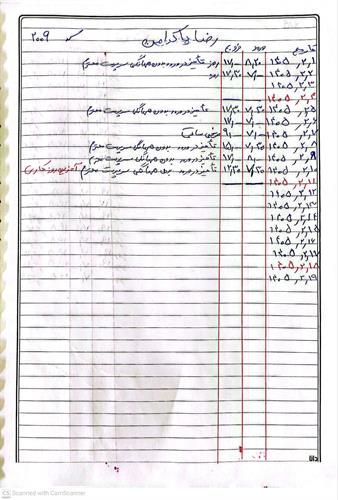 رضا پاکدامن ۲۰۰۹
تاریخ ورود خروج
۱۴۰۵,۲,۱ ۸,۲۰ ۱۷,۰۰ تأخیر در ورود بدون هماهنگی سرپرست محترم
۱۴۰۵,۲,۲ ۷,۰۰ ۱۷,۳۰
۱۴۰۵,۲,۳
۱۴۰۵,۲,۴
۱۴۰۵,۲,۵ ۷,۳۰ ۱۷,۳۰ تأخیر در ورود بدون هماهنگی سرپرست محترم
۱۴۰۵,۲,۶ ۷,۰۰ ۱۷,۰۰
۱۴۰۵,۲,۷ ۷,۰۰ ۹,۰۰ مرخصی ساعتی
۱۴۰۵,۲,۸ تأخیر در ورود بدون هماهنگی سرپرست محترم
۱۴۰۵,۲,۹ ۸,۰۰ ۱۷,۰۰ تأخیر در ورود بدون هماهنگی سرپرست محترم
۱۴۰۵,۲,۱۰ ۷,۳۰ ۱۲,۳۰ تأخیر در ورود بدون هماهنگی سرپرست محترم آخرین روز کاری
۱۴۰۵,۲,۱۱
۱۴۰۵,۲,۱۲
۱۴۰۵,۲,۱۳
۱۴۰۵,۲,۱۴
۱۴۰۵,۲,۱۵
۱۴۰۵,۲,۱۶
۱۴۰۵,۲,۱۷
۱۴۰۵,۲,۱۸
۱۴۰۵,۲,۱۹
CS Scanned with CamScanner